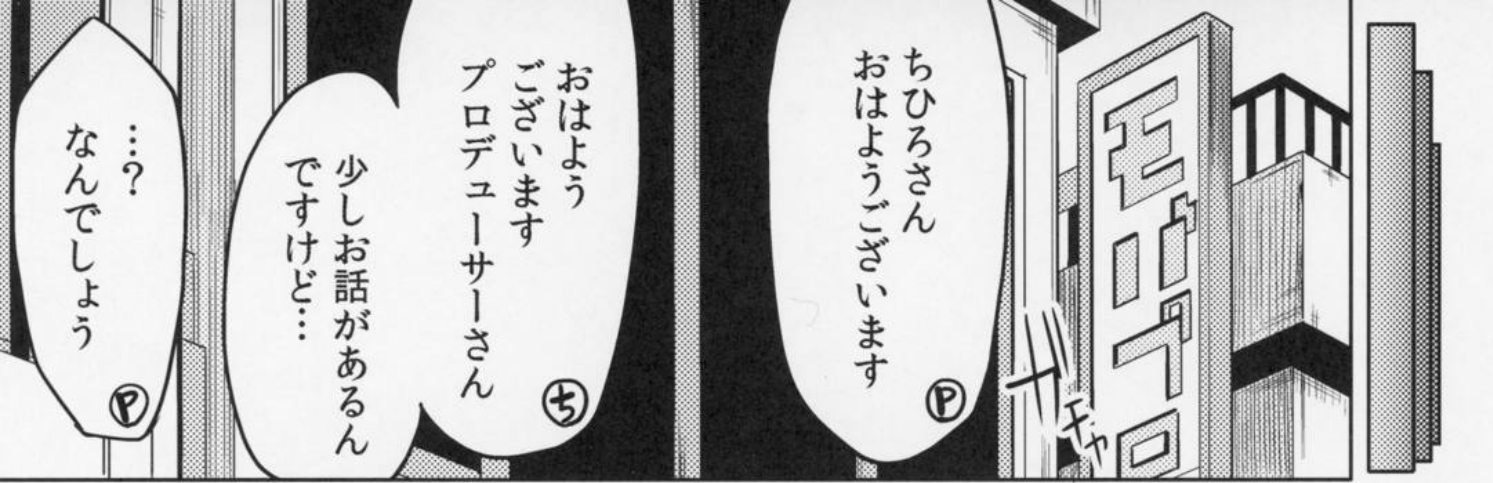 モバプロ
ガチャ
ちひろさん
おはようございます
P
おはよう
ございます
プロデューサーさん
ち
少しお話があるん
ですけど…
…?
なんでしょう
P